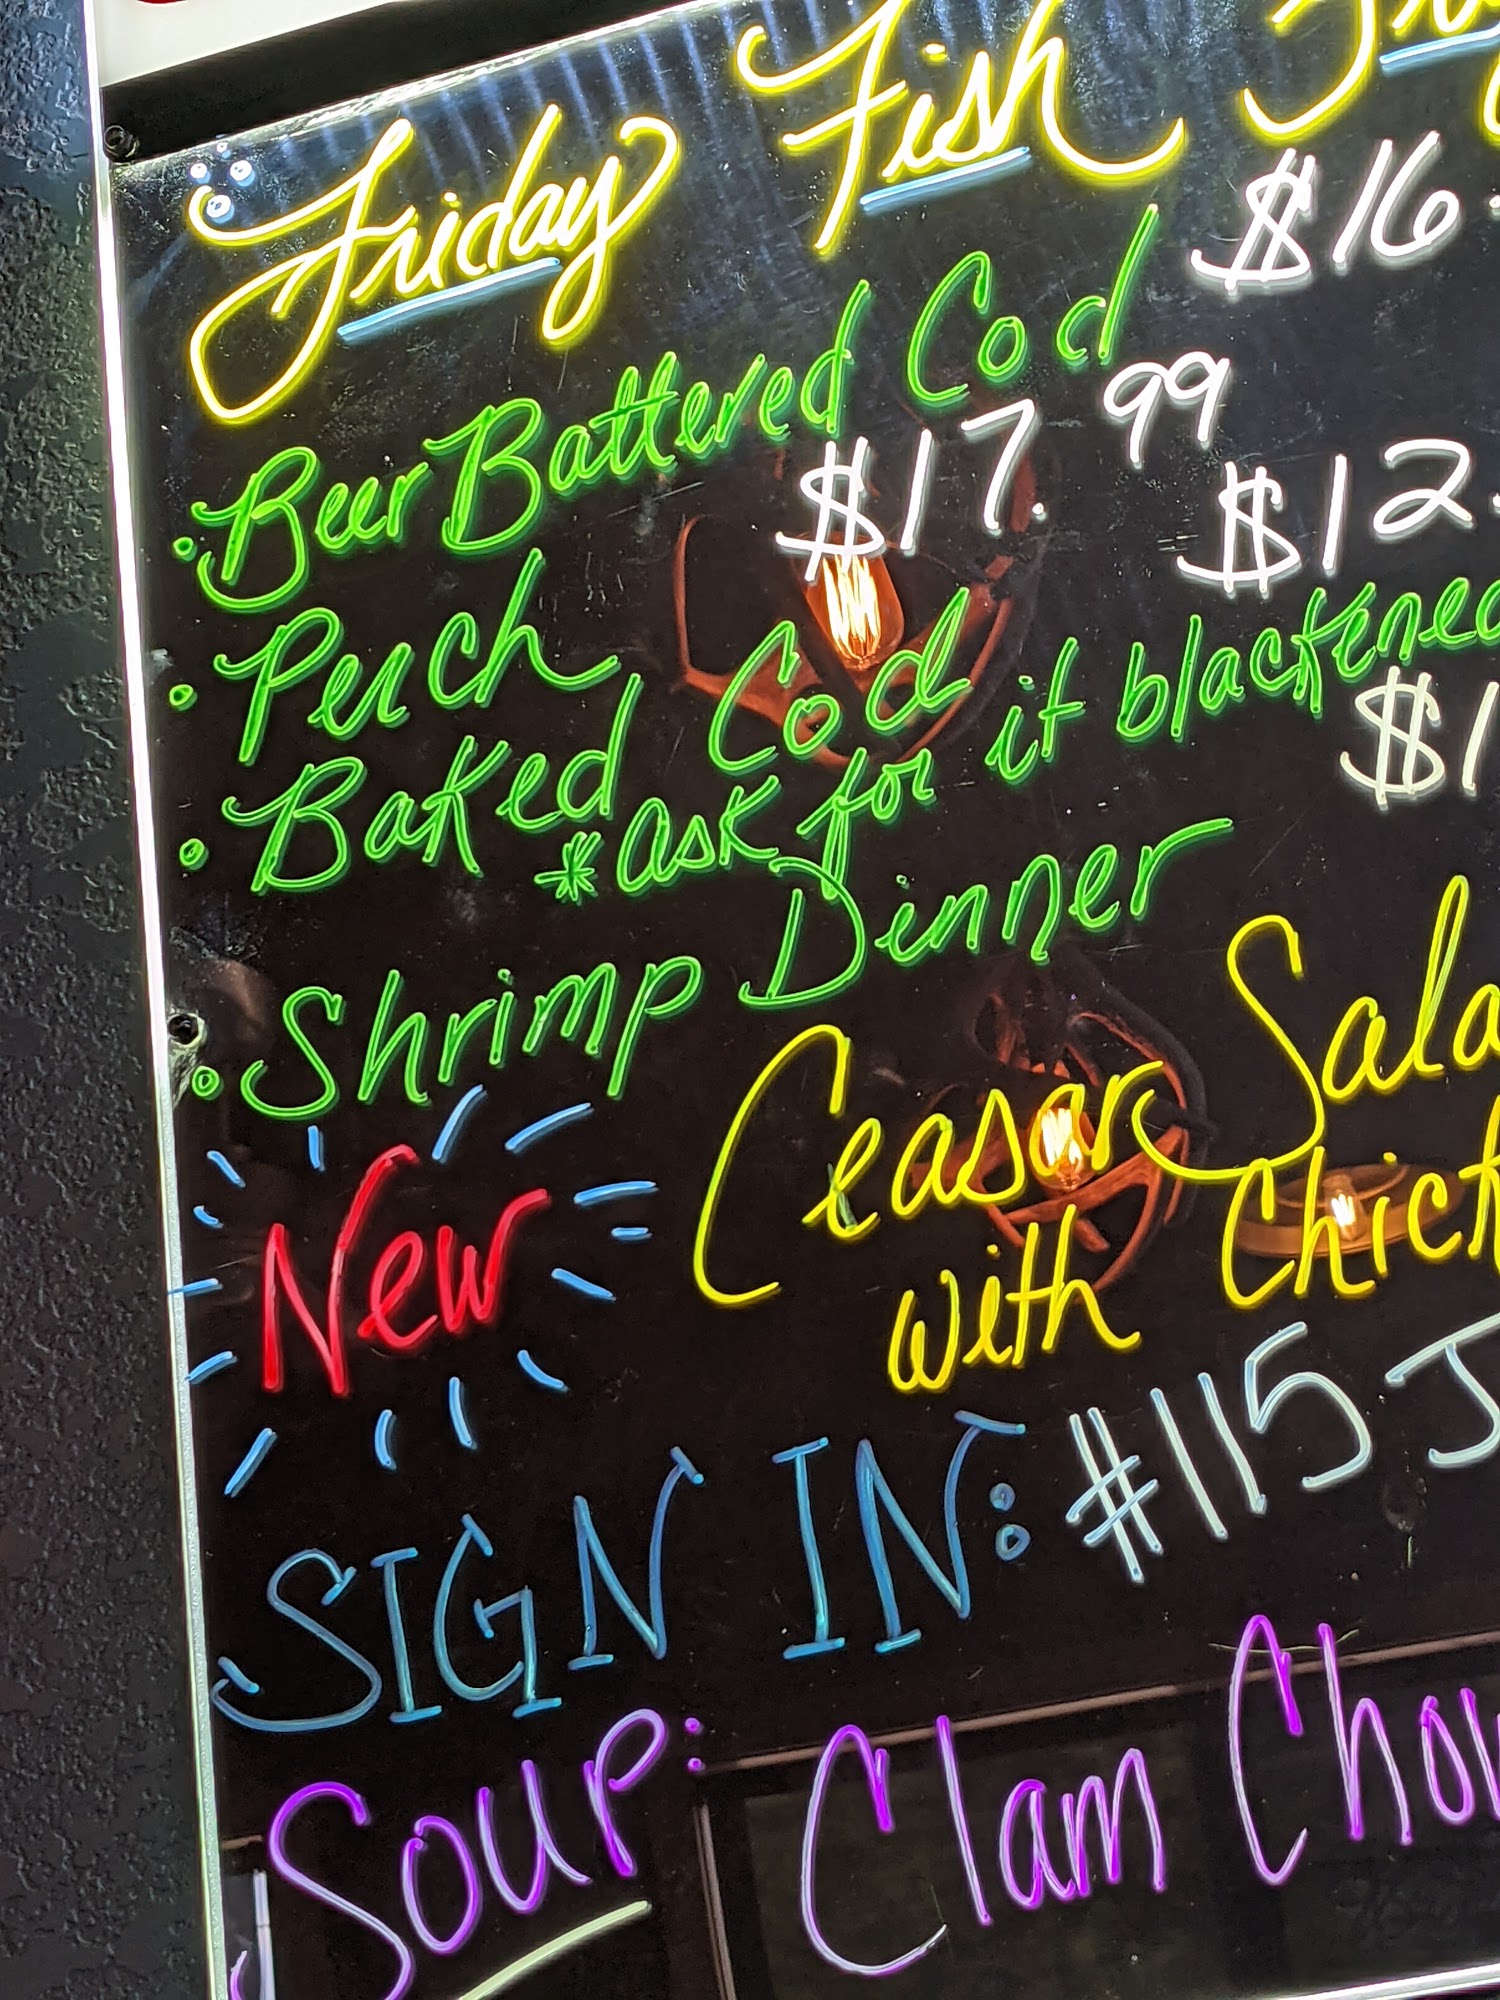 Friday Fish Fry
• Beer Battered Cod $16.
• Perch $17.99
• Baked Cod $12.
*ask for it blackened
• Shrimp Dinner $1
New Ceasar Sala
with Chick
SIGN IN: #115 J
Soup: Clam Chow